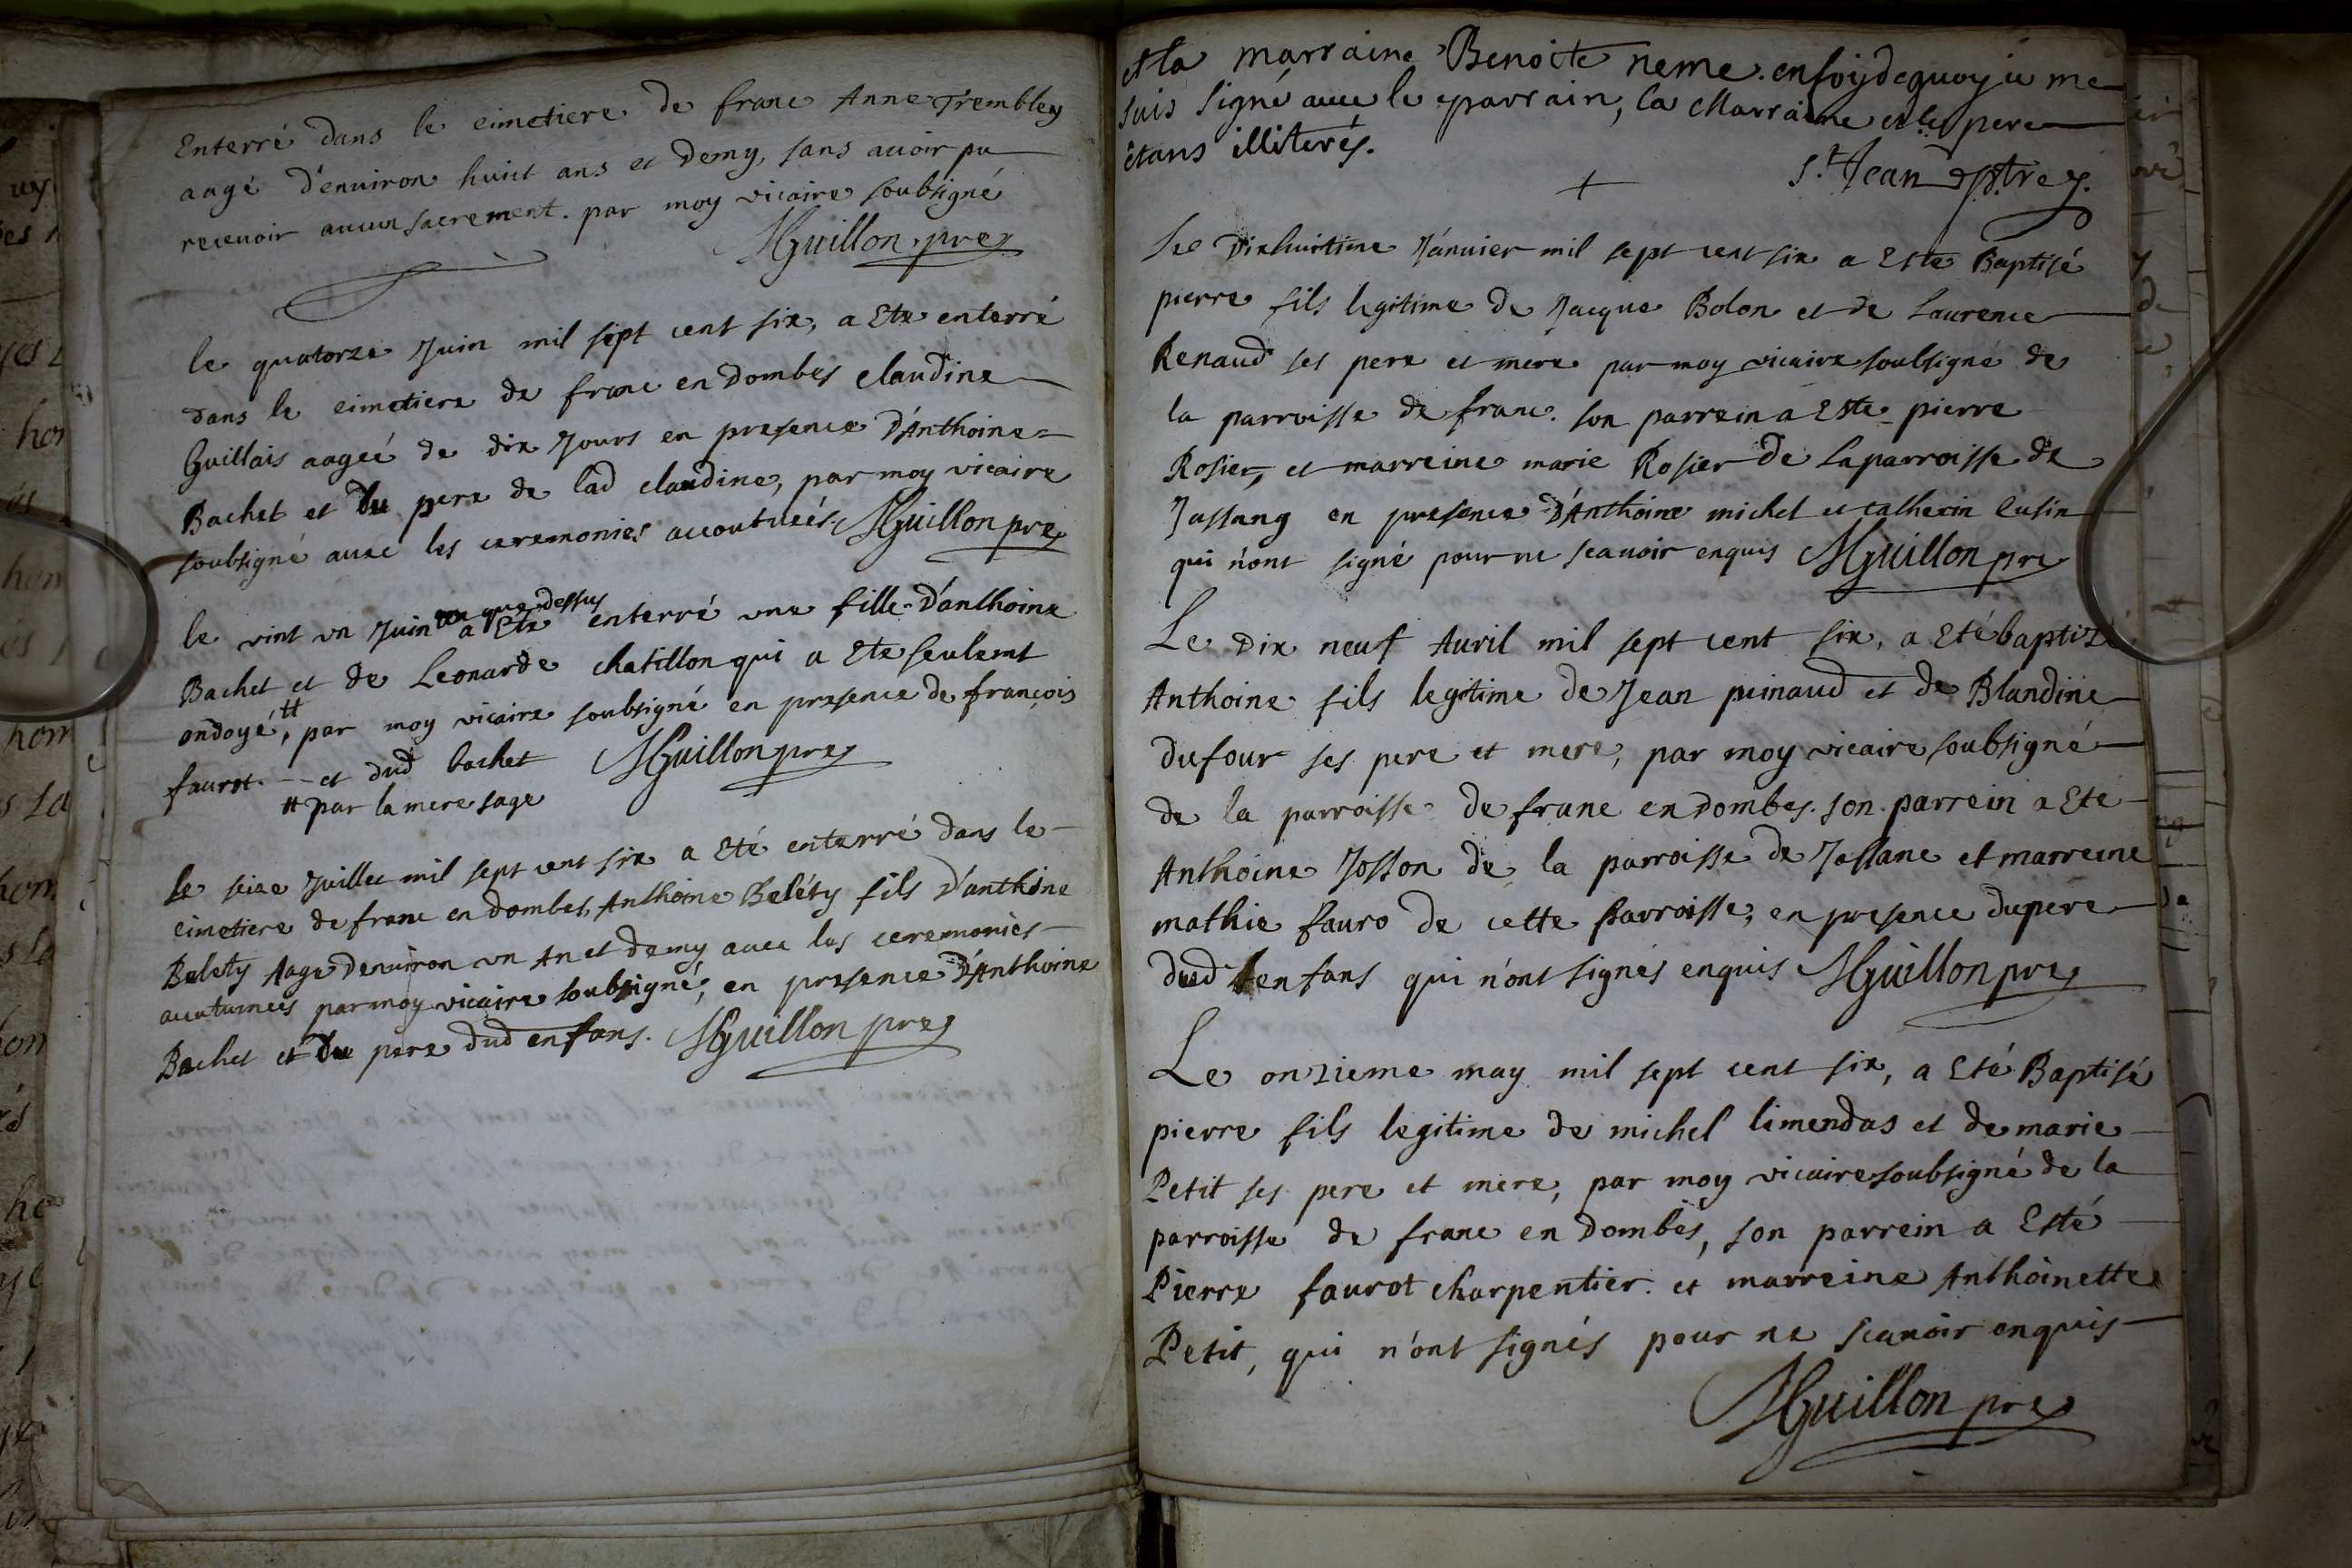 Enterré dans le cimetiere de franc Anne Trembley
aagé d'enuiron huict ans et demy, sans auoir pu
receuoir aucun sacrement. par moy vicaire soubsigné
MGuillon pre
le quatorze Juin mil sept cent six, a Ete enterré
dans le cimetiere de franc en Dombes claudine
Guillais aageé de dix Jours en presence D'Anthoine
Bachet et du pere de lad claudine, par moy vicaire
soubsigné auec les ceremonies MGuillon pre
que dessus
le vint vn Juin a Ete enterré vne fille D'anthoine
Bachet et de Leonarde chatillon qui a Ete seulemt
ondoyé, # par moy vicaire soubsigné en presence de françois
faurot et dud bachet MGuillon pre
# par la mere sage
le seize Juillet mil sept cent six a Eté enterré dans le
cimetiere de franc en dombes, Anthoine Beléty fils D'anthoine
Belety Aagé Denuiron vn An et demy auec les ceremonies
acoutumeés par moy vicaire soubsigné, en presence D'Anthoine
Bachet et du pere dud enfans. MGuillon pre
et la marraine Benoite neme. en foy de quoy je me
suis signé auec le parrain, la Marraine et le pere
étans illiterés.
St Jean ptre
Le Dixhuitime Januier mil sept cent six a Este Baptisé
pierre fils legitime de Jacque Bolon et de Laurence
Renaud ses pere et mere par moy vicaire soubsigné de
la parroisse de franc. son parrein a Este pierre
Rosier, et marreine marie Rosier de la parroisse de
Jassang en presence D'Anthoine michel et catherin Cusin
qui n'ont signé pour ne scauoir enquis MGuillon pre
Le Dix neuf Auril mil sept cent six, a Eté baptizé
Anthoine fils legitime de Jean pinaud et de Blandine
dufour ses pere et mere, par moy vicaire soubsigné
de la parroisse de franc en Dombes. son parrein a Eté
Anthoine Josson de la parroisse de Jassane et marreine
mathie fauro de cette parroisse, en presence du pere
dud enfans qui n'ont signés enquis MGuillon pre
Le onzieme may mil sept cent six, a Eté Baptisé
pierre fils legitime de michel limendas et de marie
Petit ses pere et mere, par moy vicaire soubsigné de la
parroisse de franc en Dombes, son parrein a Esté
Pierre faurot charpentier. et marreine Anthoinette
Petit, qui n'ont signés pour ne scauoir enquis
MGuillon pre